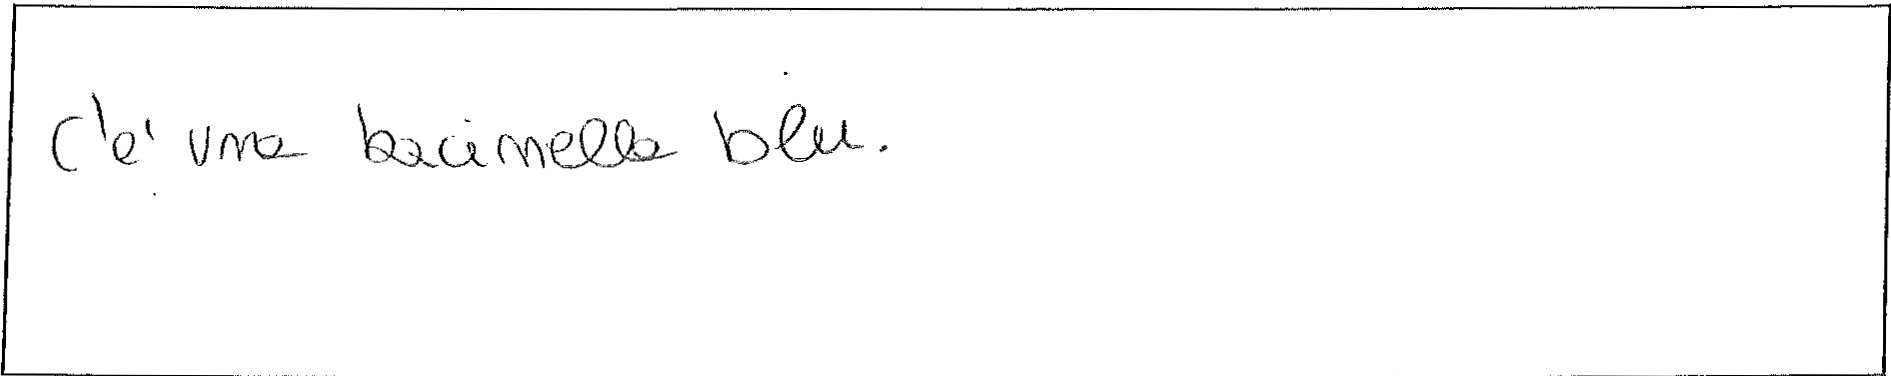 C'è una bacinella blu.